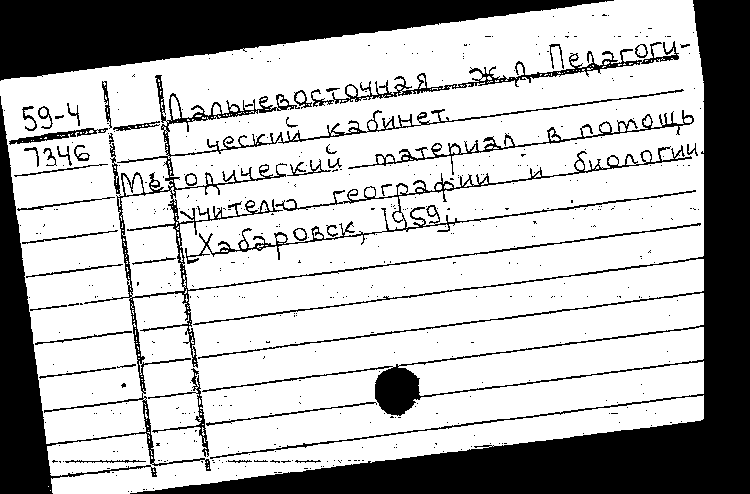 59-4
7346
Дальневосточная ж. д. Педагоги-
ческий кабинет.
Методический материал в помощь
учителю географии и биологии.
Хабаровск, 1959г.